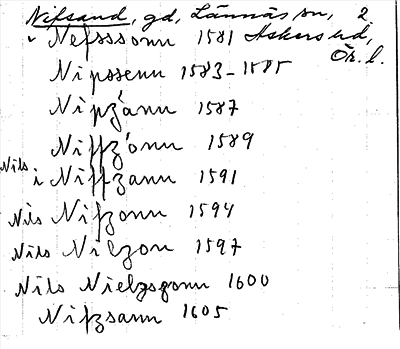 Nifsand, gd, Lännäs sn, 2
i Nefsssonu 1581 Askers hd,
Nipssenu 1583-1585 Ör. l.
Nipzánu 1587
Niffzonu 1589
Nils i Niffzanu 1591
Nils Nifzonu 1594
Nils Nilzon 1597
Nils Nielzsponu 1600
Nifzsanu 1605